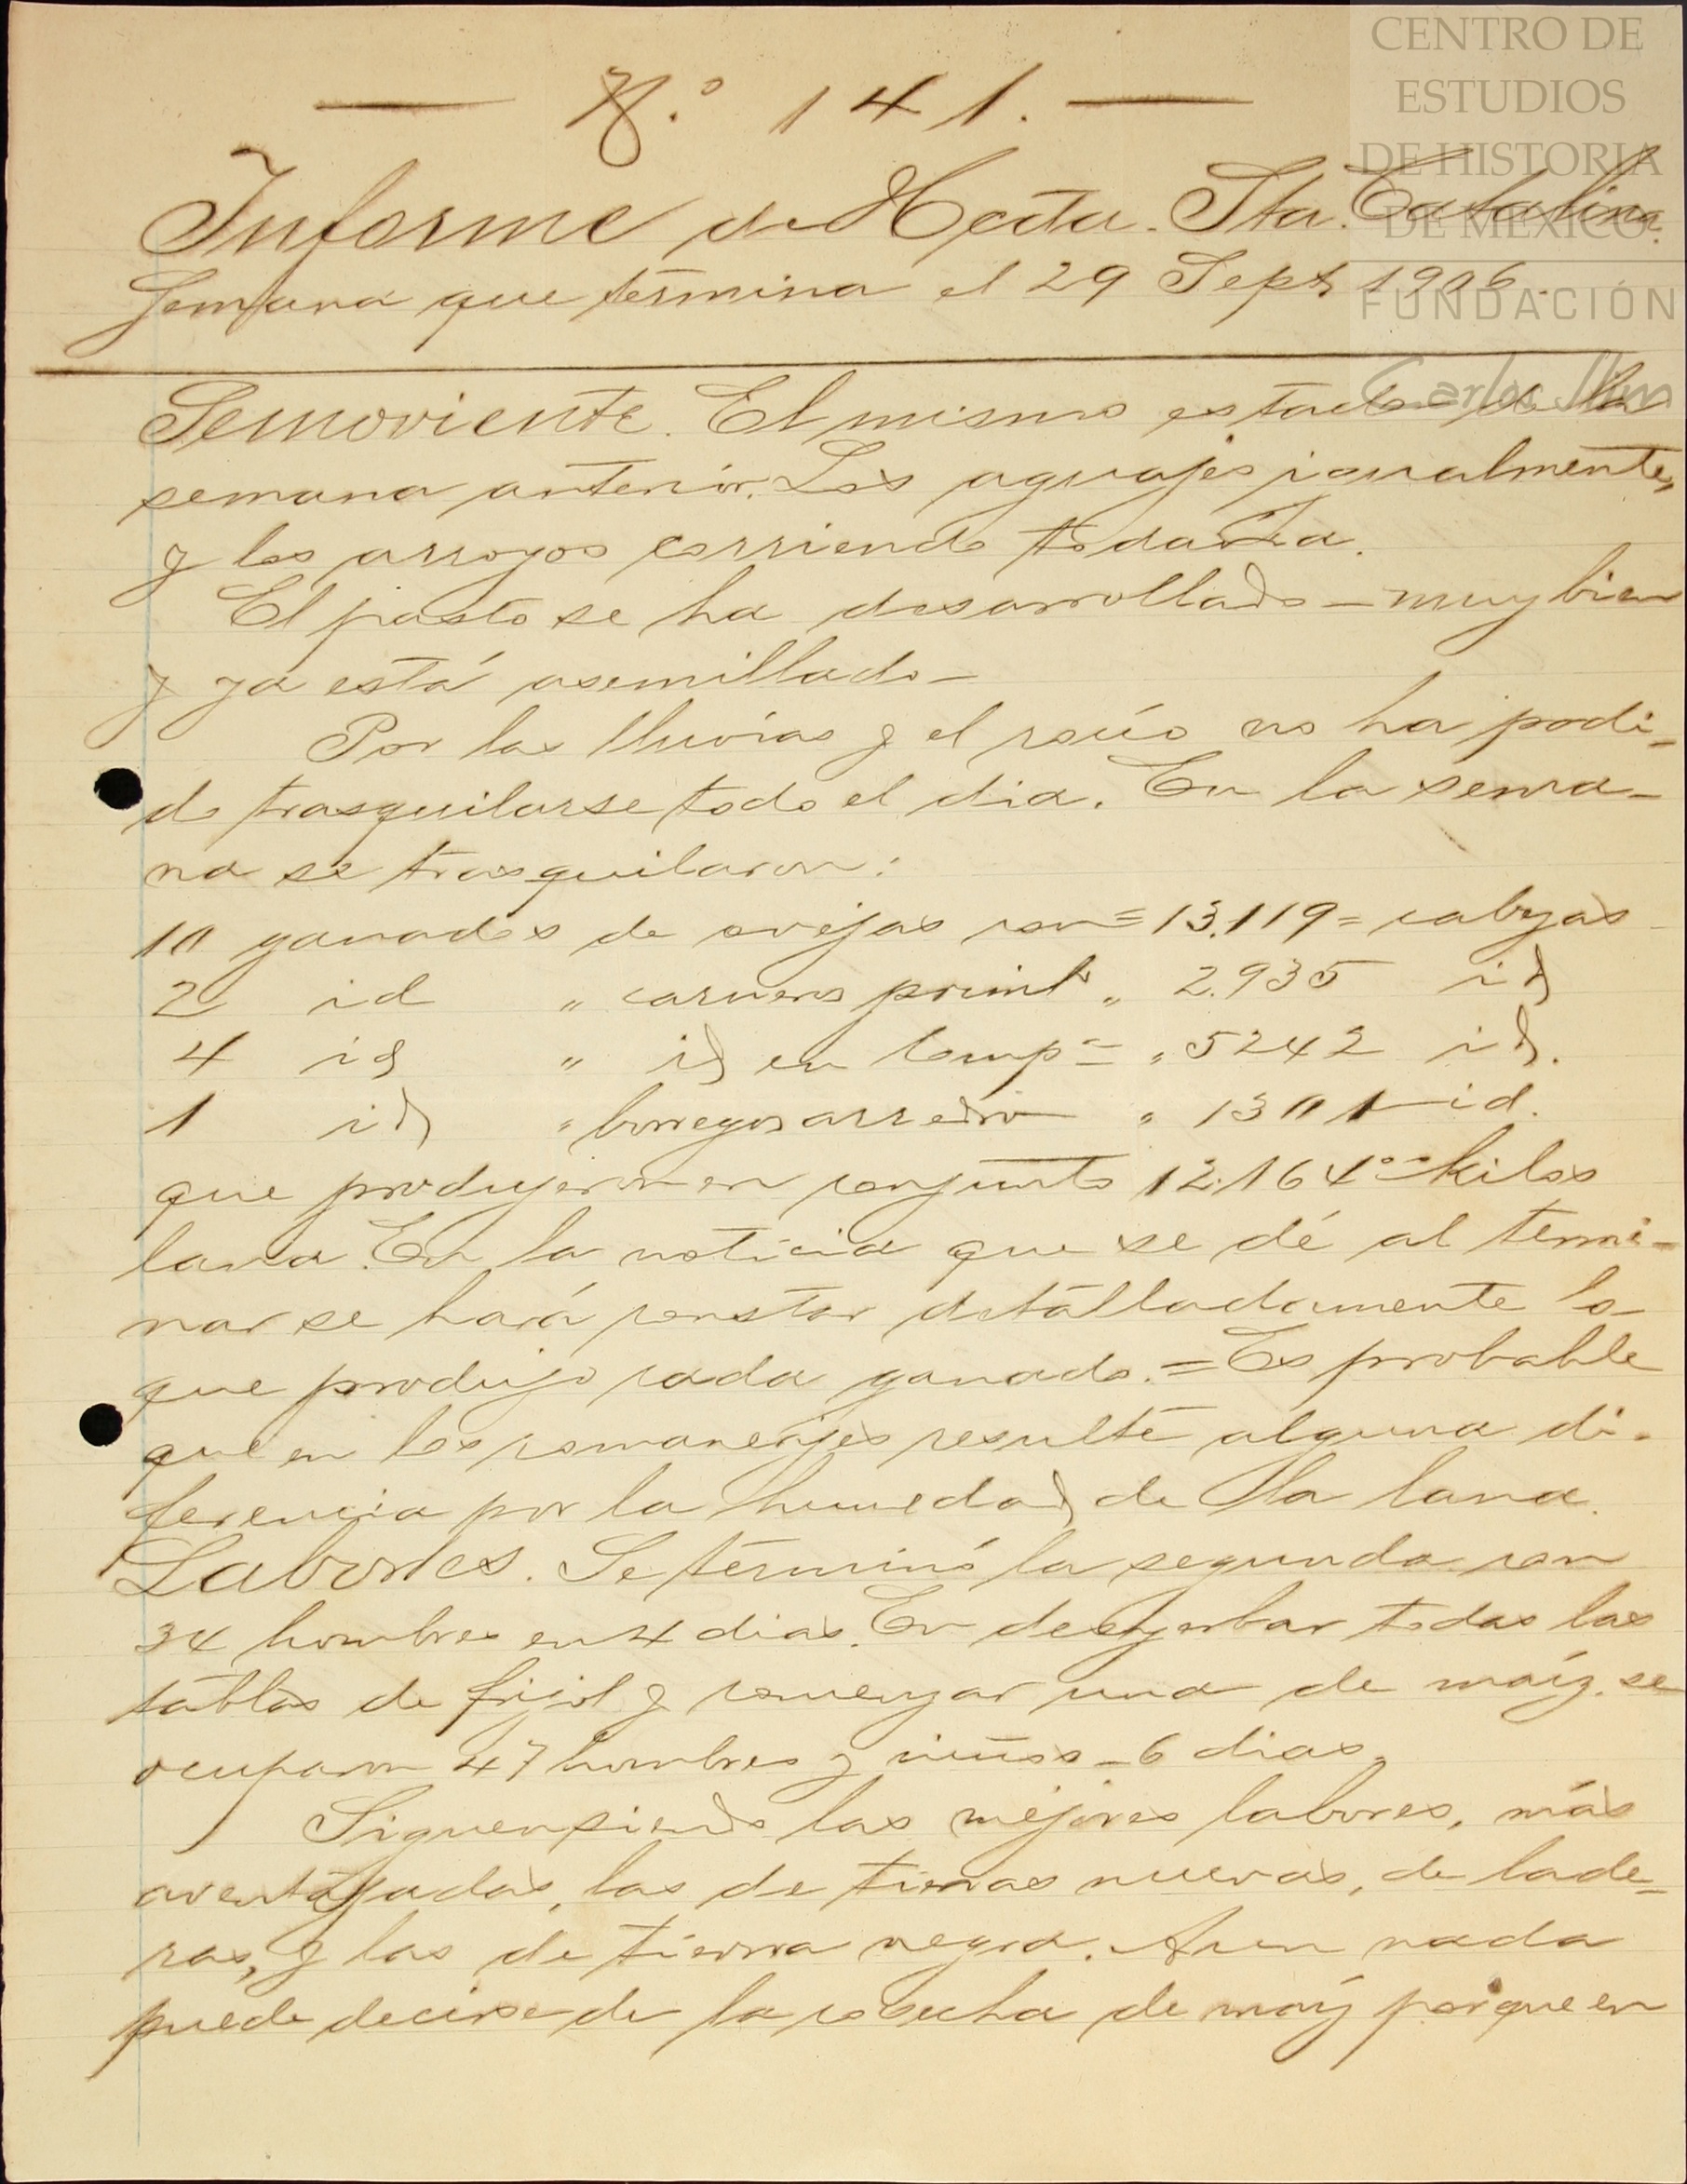 CENTRO DE
ESTUDIOS
DE HISTORIA
DE MÉXICO
FUNDACIÓN
Carlos Slim
N.º 141.
Informe de Hcda. Sta. Catalina.
Semana que termina el 29 Sept 1906.
Semoviente. El mismo estado de la
semana anterior. Los aguajes igualmente,
y los arroyos corriendo todavia.
El pasto se ha desarrollado muy bien
y ya está asemillado
Por las lluvias y el rocío no ha podi-
do trasquilarse todo el dia. En la sema-
na se trasquilaron:
10 ganados de ovejas con = 13.119 = cabezas
2 id " carneros priml " 2.935 id
4 id " id en temp = " 5242 id.
1 id " borregos arredro " 1301 id.
que produjeron en conjunto 12.164 kilos
lana. En la noticia que se dé al termi-
nar se hará constar detalladamente lo
que produjo cada ganado. = Es probable
que en los romanenjes resulte alguna di-
ferencia por la humedad de la lana.
Labores. Se terminó la segunda con
34 hombres en 4 dias. En desyerbar todas las
tablas de frijol y comenzar una de maíz se
ocuparon 47 hombres y niños - 6 dias.
Siguen siendo las mejores labores, más
aventajadas, las de tierras nuevas, de lade-
ras, y las de tierra negra. Aun nada
puede decirse de la cosecha de maiz porque en